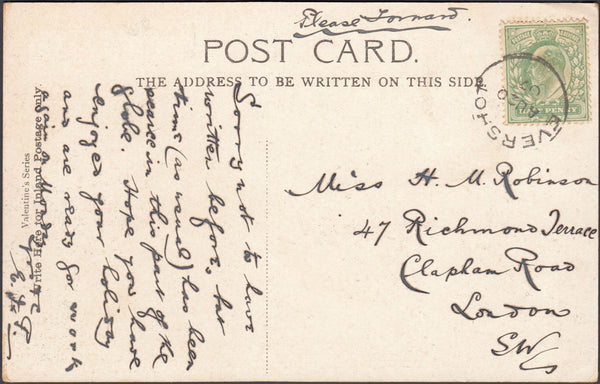 Please Forward.
POST CARD.
THE ADDRESS TO BE WRITTEN ON THIS SIDE
EVERSHOT
AU 26
07
PENNY
Miss H. M. Robinson
47 Richmond Terrace
Clapham Road
London
SW
Sorry not to have
written before, but
time (as usual) has been
scarce in this part of the
globe. Hope you have
enjoyed your holiday
and are ready for work
again on Monday
Valentine's Series
Write Here for Inland Postage Only.